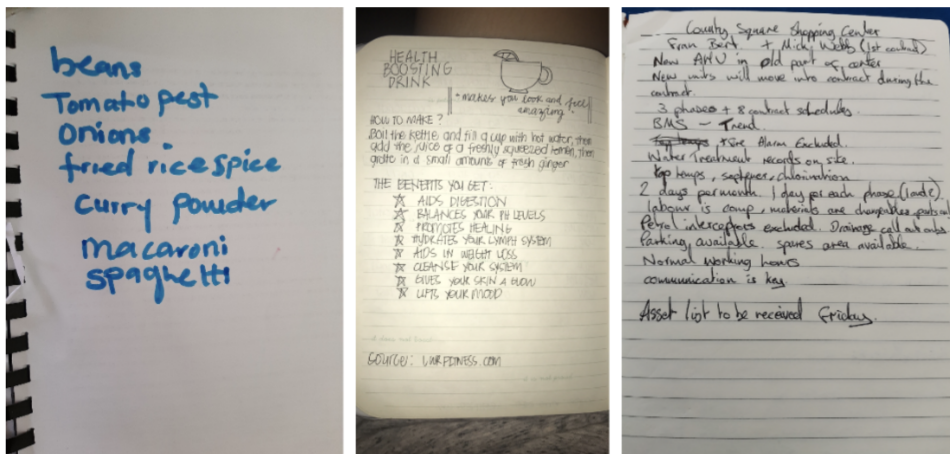 beans
Tomato pest
Onions
fried rice spice
curry powder
macaroni
spaghetti
HEALTH
BOOSTING
DRINK
"makes you look and feel
amazing"
HOW TO MAKE?
Boil the kettle and fill a cup with hot water, then
add the juice of a freshly squeezed lemon, then
grate in a small amounts of fresh ginger
THE BENEFITS YOU GET:
AIDS DIGESTION
BALANCES YOUR PH LEVELS
PROMOTES HEALING
HYDRATES YOUR LYMPH SYSTEM
AIDS IN WEIGHT LOSS
CLEANSE YOUR SYSTEM
GIVES YOUR SKIN A GLOW
LIFTS YOUR MOOD
Source:
County Square Shopping Center
Fran Bert + Micky Webb (1st contact)
New AHU in old part of center
New units will move into contract during the
contract.
3 phases + 8 contract schedules.
BMS - Trend
Fire Alarm Excluded.
Water Treatment records on site.
temps, chlorination
2 days per month. 1 day per each phase
labour is comp, materials are chargeable
Petrol interceptors excluded. Drainage call out only
Parking available. spares area available.
Normal working hours
communication is key.
Asset list to be received Friday.